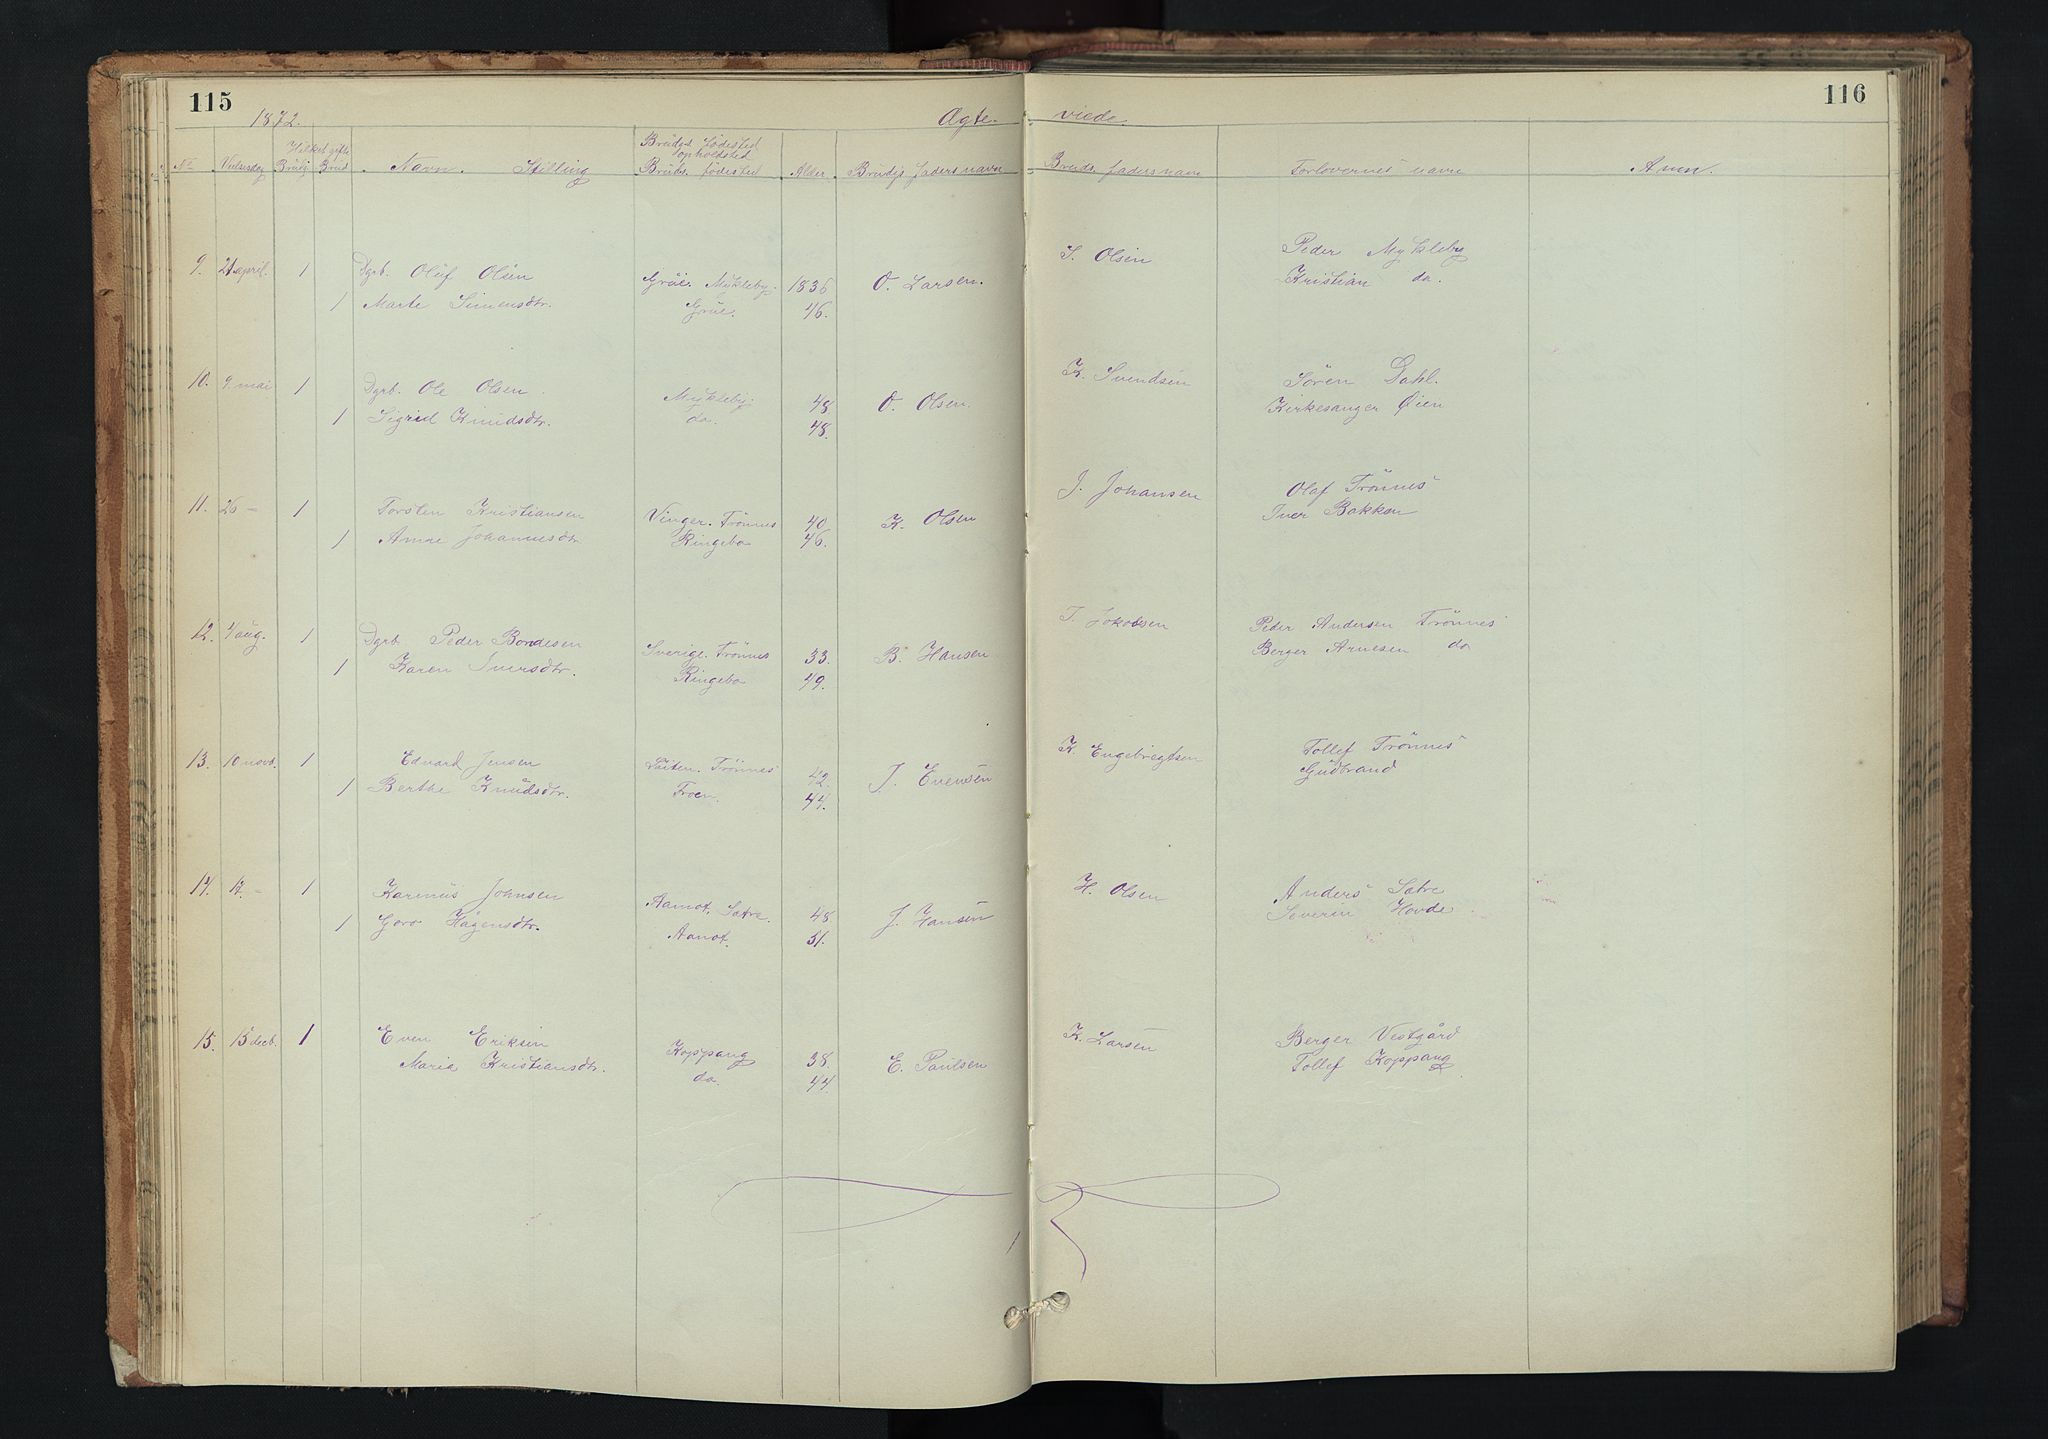 115
116
1872.
Ægte-
viede.
No
Vielsesdag
Hilket gifte
Brudg.
Brud
Navn. Stilling
Brudgs. fødested
opholdsted
Bruds. fødested
Alder
Brudgs. faders navn
Bruds. faders navn
Forlovernes navne
Anm.
9. 21 april. 1 Dgrb. Oluf Olsen Grüe. Mykleby. 1836 O. Larsen. S. Olsen Peder Mykleby
1 Marte Simensdtr. Grüe. 46. Kristian do.
10. 9 mai 1 Dgrb. Ole Olsen Mykleby. 48 O. Olsen. K. Svendsen Sören Dahl.
1 Sigrid Knudsdtr. do. 48. Kirkesanger Øien
11. 26 - 1 Torsten Kristiansen Vinger. Trönnes 40 K. Olsen J. Johansen Olaf Trönnes
1 Anne Johannesdtr Ringebo 46. Iver Bakken
12. 4 aug. 1 Dgrb Peder Bordesen Sverige. Trönnes 33. B. Hansen I. Jakobsen Peder Andersen Trönnes
1 Karen Iversdtr. Ringebo 49. Berger Arnesen do
13. 10 novb. 1 Edvard Jensen Löiten. Trönnes 42. J. Evensen K. Engebrigtsen Tollef Trönnes
1 Berthe Knudsdtr. Froen. 44. Gudbrand
14. 17. - 1 Karinus Johnsen Aamot. Sætre. 48 J. Hansen H. Olsen Anders Sætre
1 Goro Hågensdtr. Aamot. 51. Severin Hovde
15. 15 decb. 1 Even Eriksen Koppang 38. E. Paulsen K. Larsen Berger Vestgård
Maria Kristiansdtr. do. 44. Tollef Koppang